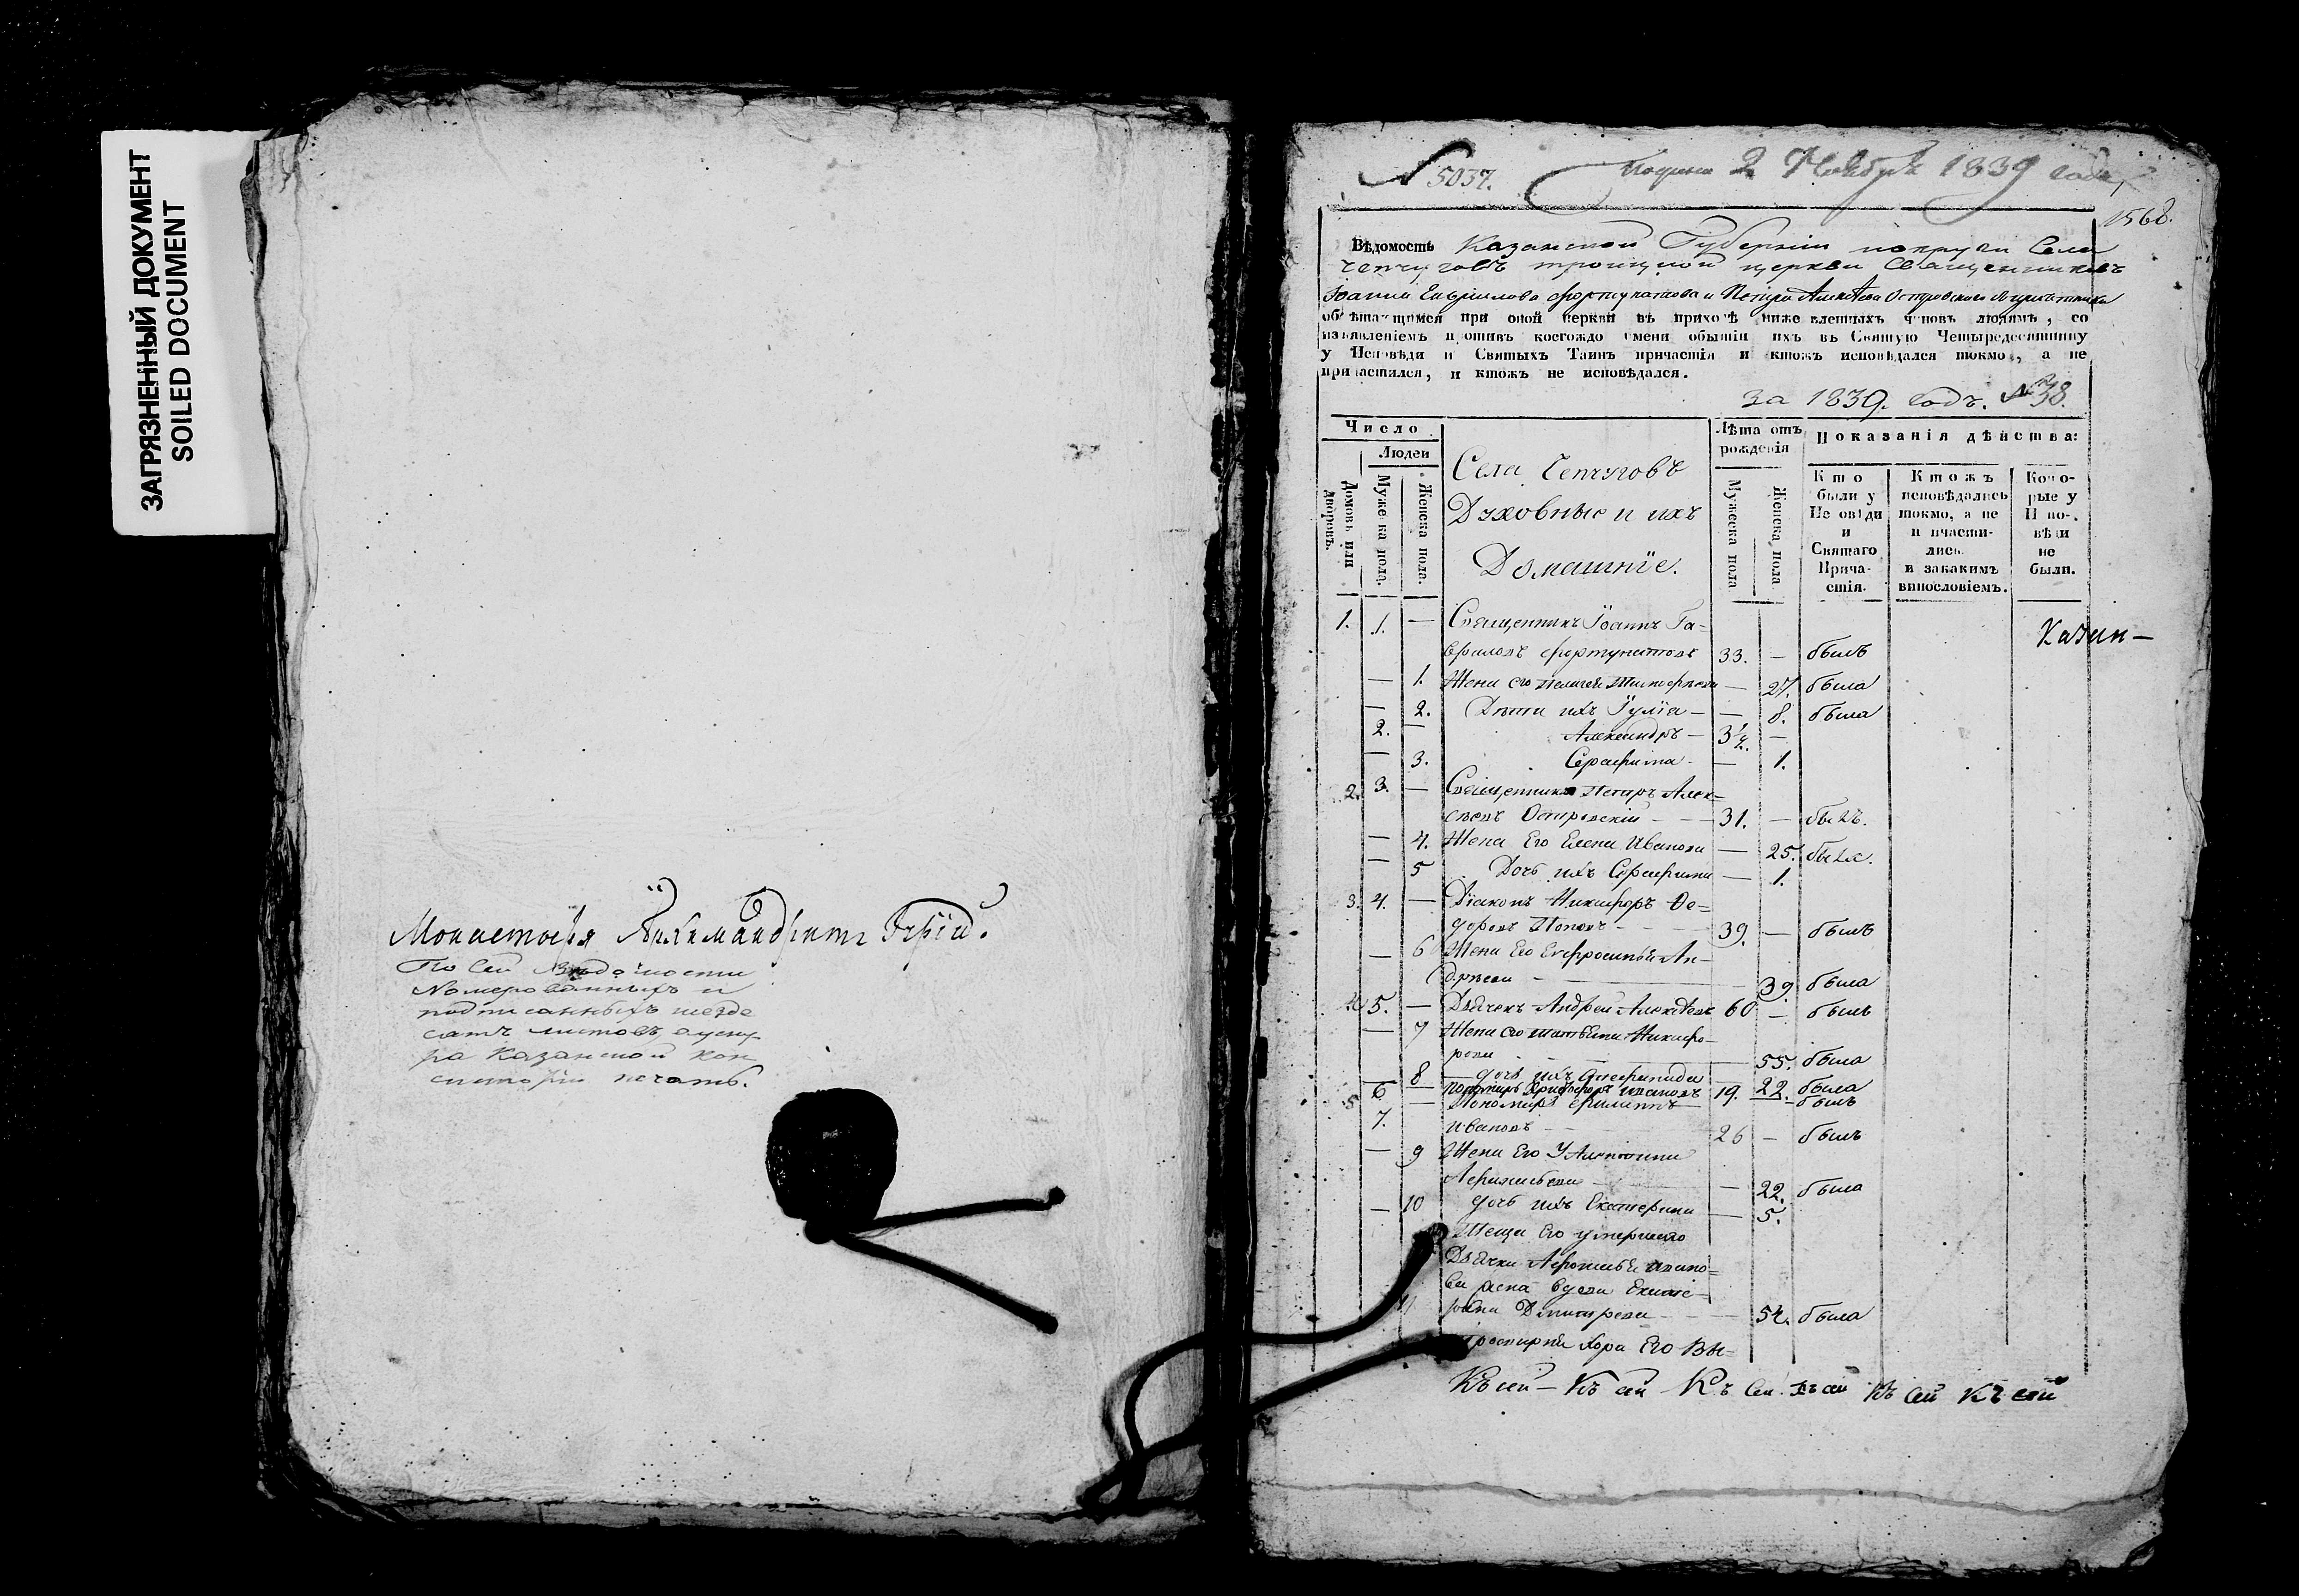 ЗАГРЯЗНЕННЫЙ ДОКУМЕНТ
SOILED DOCUMENT
Монастыря Архимандритъ Гурій.
По сей Вѣдомости
Номерованныхъ и
подписанныхъ шезде
сатъ листовъ, а у сну
ра Казанской Кон
систоріи печать.
N 5037. 2 Ноября 1839 года
1568.
Вѣдомость Казанской Губерніи и округи Села
Чепчуговъ троицкой церкви Священниковъ
Іоанна Гавриилова Фортунатова и Петра Алексѣева Островскаго
обрѣтающимся при оной церкви въ приходѣ нижеявленныхъ чиновъ людямъ, со
изъявленіемъ противъ коегождо имени о бытіи ихъ въ Святую Четыредесятницу
у Исповѣди и Святыхъ Таинъ причастія и ктожъ исповѣдался токмо, а не
причастился, и ктожъ не исповѣдался.
за 1839. годъ. № 38.
Число
Людей
Домовъ или дворовъ.
Мужеска пола.
Женска пола.
Села Чепчуговъ
Духовные и ихъ
Домашніе.
Лѣта отъ рожденія
Мужеска пола
Женска пола
Показанія дѣйства:
Кто были у Исповѣди и Святаго Причастія.
Ктожъ исповѣдались токмо, а не причастились и закакимъ винословіемъ.
Которые у Исповѣди не были.
1. 1. — Священникъ Іоаннъ Га=
вриловъ Фортунатовъ 33. — былъ
Казан—
— 1. Жена его Пелагея — 27. была
— 2. Дѣти ихъ Іулія — — 8. была
2. — Александръ — 3½. —
— 3. Серафима — — 1.
2. 3. — Священникъ Петръ Алек=
сѣевъ Островскій — 31. — былъ.
— 4. Жена Его Елена Иванова — 25. была.
— 5 Дочь ихъ Серафима — 1.
3. 4. — Діаконъ Никифоръ Ѳе=
доровъ Поповъ — 39. — былъ
— 6 Жена Его Евфросинья Ан-
дреева — 39. была
4. 5. — Дьячекъ Андрей Алексѣевъ 60 — былъ
— 7 Жена его Никифо-
рова — 55. была
8 — дочь ихъ — 22. была
6 — Христофоръ Ивановъ 19. — былъ
5 7. — Пономарь Филиппъ
Ивановъ — 26 — былъ
— 9 Жена Его
— 22. была
— 10 дочь ихъ Екатерина — 5.
Теща Его умершаго
Дьячка
ва жена вдова Екате-
11 рина Димитрева — 54. была
Его Вы=
Къ сей — Къ сей Къ сей Къ сей Къ сей Къ сей